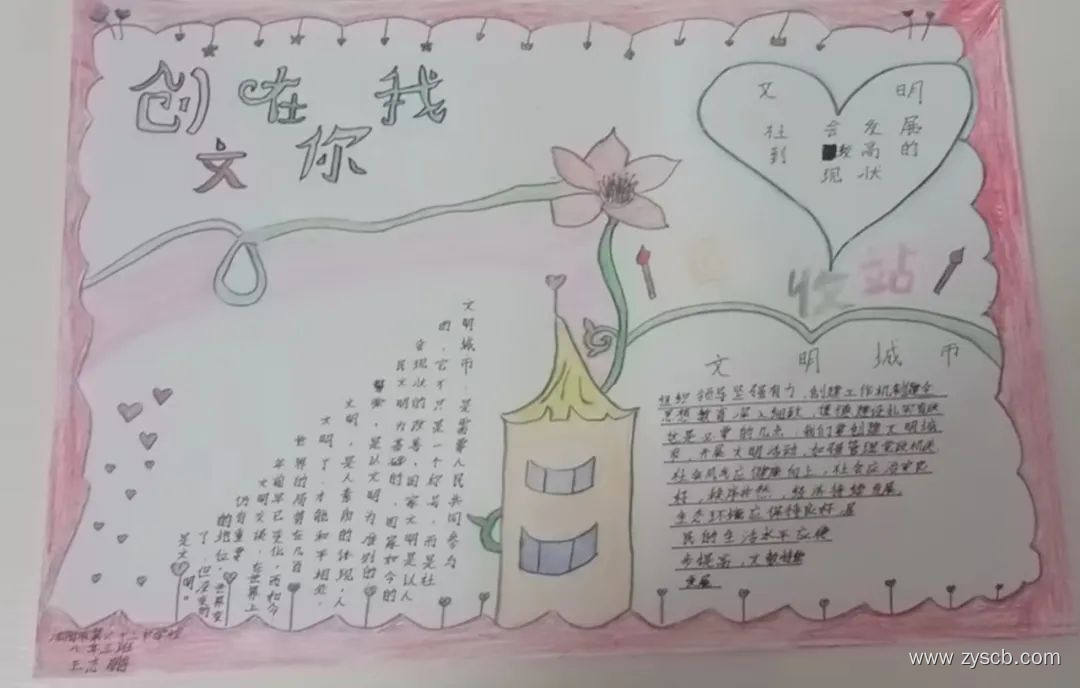 创 在 我
文 你
文 明
社 会 发 展
到 较 高 的
现 状
收 站
文明城市,是需要人民共同参与
的,它不只是一个称号,而是社
会现状的改善,国家文明是以人
民文明为基础的,国家如今的
繁荣,是以文明为准则的
文明,是人素质的体现,人
文明了,才能和平相处,
世界的局势在几百
年前早已变化,而如今
文明交谈,在世界上
仍有重要
的地位,世界变
了,但不变的
是文明。
文 明 城 市
组织领导坚强有力,创建工作机制健全
思想教育深入细致,道德建设扎实有效
这是必要的几点,我们要创建文明城
市,开展文明活动,加强管理党政机关
社会风气应健康向上,社会应治安良
好,秩序井然,经济持续发展,
生态环境应保持良好,居
民的生活水平应逐
步提高,文
发展
八年三班
www.zyscb.com